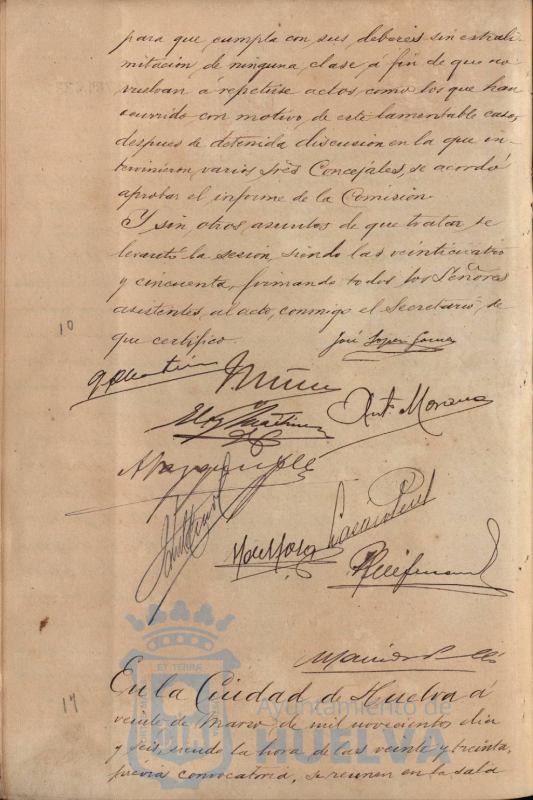 para que cumpla con sus deberes sin extrali-
mitación de ninguna clase, a fin de que no
vuelvan a repetirse actos como los que han
ocurrido con motivo de este lamentable caso,
despues de detenida discusion en la que in-
tervinieron varios Sres Concejales, se acordó
aprobar el informe de la Comisión.
Y sin otros asuntos de que tratar se
levantó la sesion, siendo las veinticuatro
y cincuenta, firmando todos los Señores
asistentes al acto, conmigo el Secretario, de
que certifico.
10
José Lopez Gomez
Eloy Martinez
Ant. Moreno
17
En la Ciudad de Huelva á
veinte de Marzo de mil novecientos diez
y seis siendo la hora de las veinte y treinta,
previa convocatoria, se reunen en la sala
ET TERRÆ
Ayuntamiento de
HUELVA